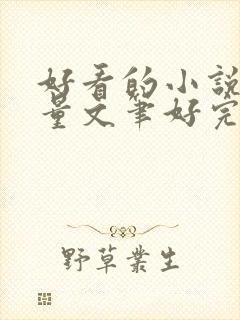 好看的小說
量文筆好完
野草叢生